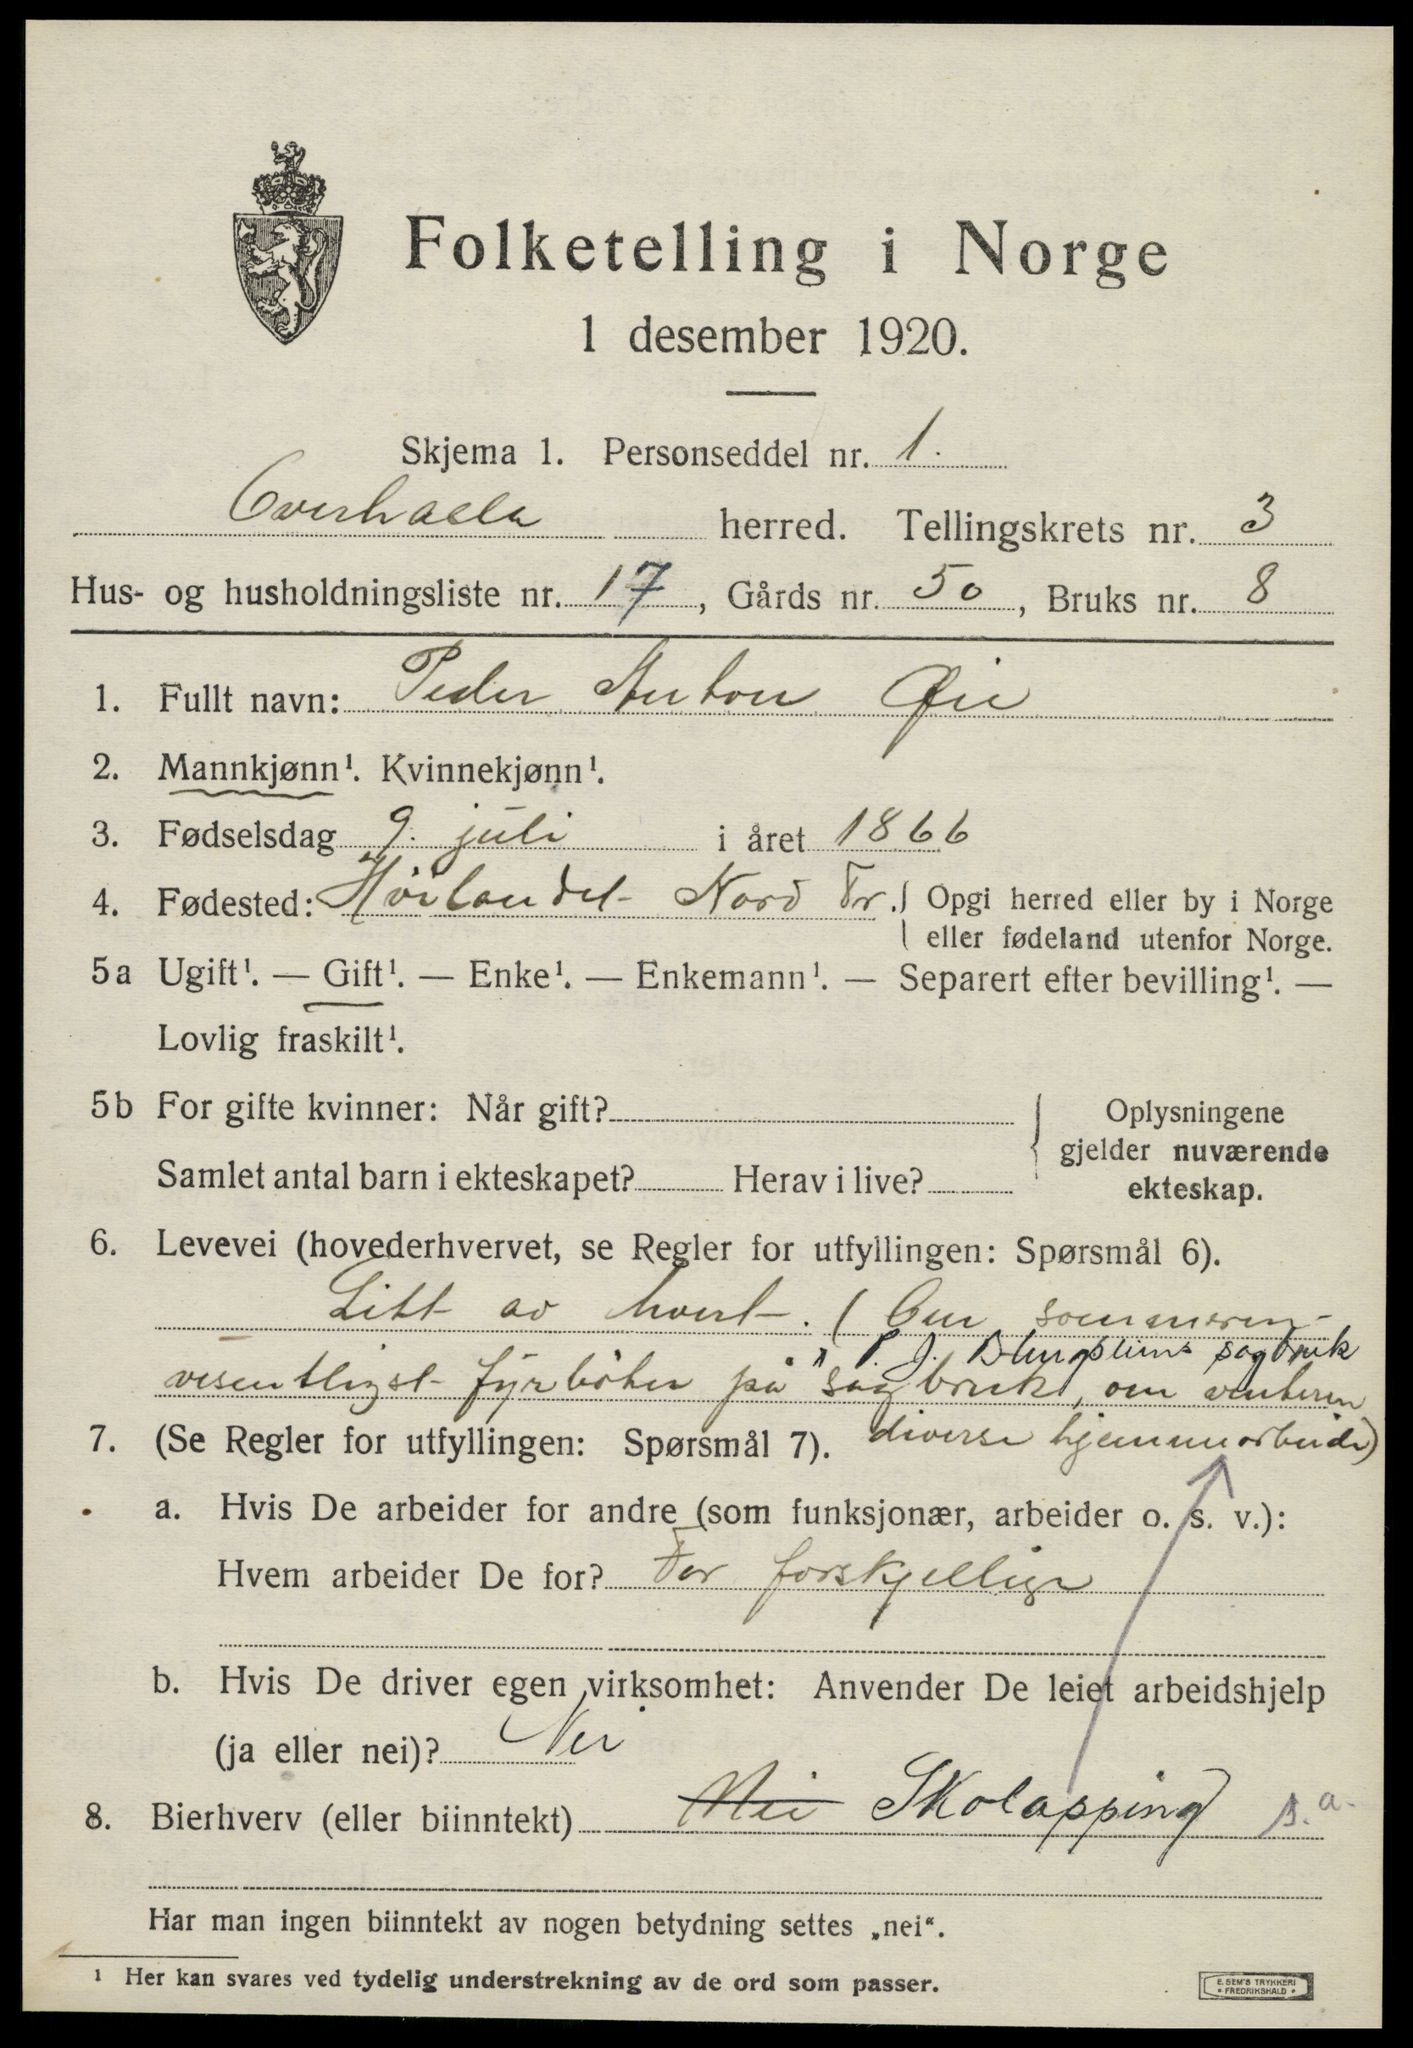 Folketelling i Norge
1 desember 1920.
Skjema 1. Personseddel nr. 1.
Overhalla herred. Tellingskrets nr. 3
Hus- og husholdningsliste nr. 17, Gårds nr. 50, Bruks nr. 8
1. Fullt navn: Peder Anton Øie
2. Mannkjønn¹. Kvinnekjønn¹.
3. Fødselsdag 9. juli i året 1866
4. Fødested: Høilandet Nord Tr. Opgi herred eller by i Norge
eller fødeland utenfor Norge.
5a Ugift¹. — Gift¹. — Enke¹. — Enkemann¹. — Separert efter bevilling¹. —
Lovlig fraskilt¹.
5b For gifte kvinner: Når gift? Oplysningene
gjelder nuværende
Samlet antal barn i ekteskapet? Herav i live? ekteskap.
6. Levevei (hovederhvervet, se Regler for utfyllingen: Spørsmål 6).
Litt av hvert. (Om sommeren
P. J. sagbruk
vesentligst fyrbøter på sagbruk, om vinteren
7. (Se Regler for utfyllingen: Spørsmål 7). diverse hjemmearbeide)
a. Hvis De arbeider for andre (som funksjonær, arbeider o. s. v.):
Hvem arbeider De for? For forskjellige
b. Hvis De driver egen virksomhet: Anvender De leiet arbeidshjelp
(ja eller nei)? Nei
8. Bierhverv (eller biinntekt) Nei Skolapping s.a.
Har man ingen biinntekt av nogen betydning settes „nei“.
¹ Her kan svares ved tydelig understrekning av de ord som passer.
E. SEM'S TRYKKERI
• FREDRIKSHALD •